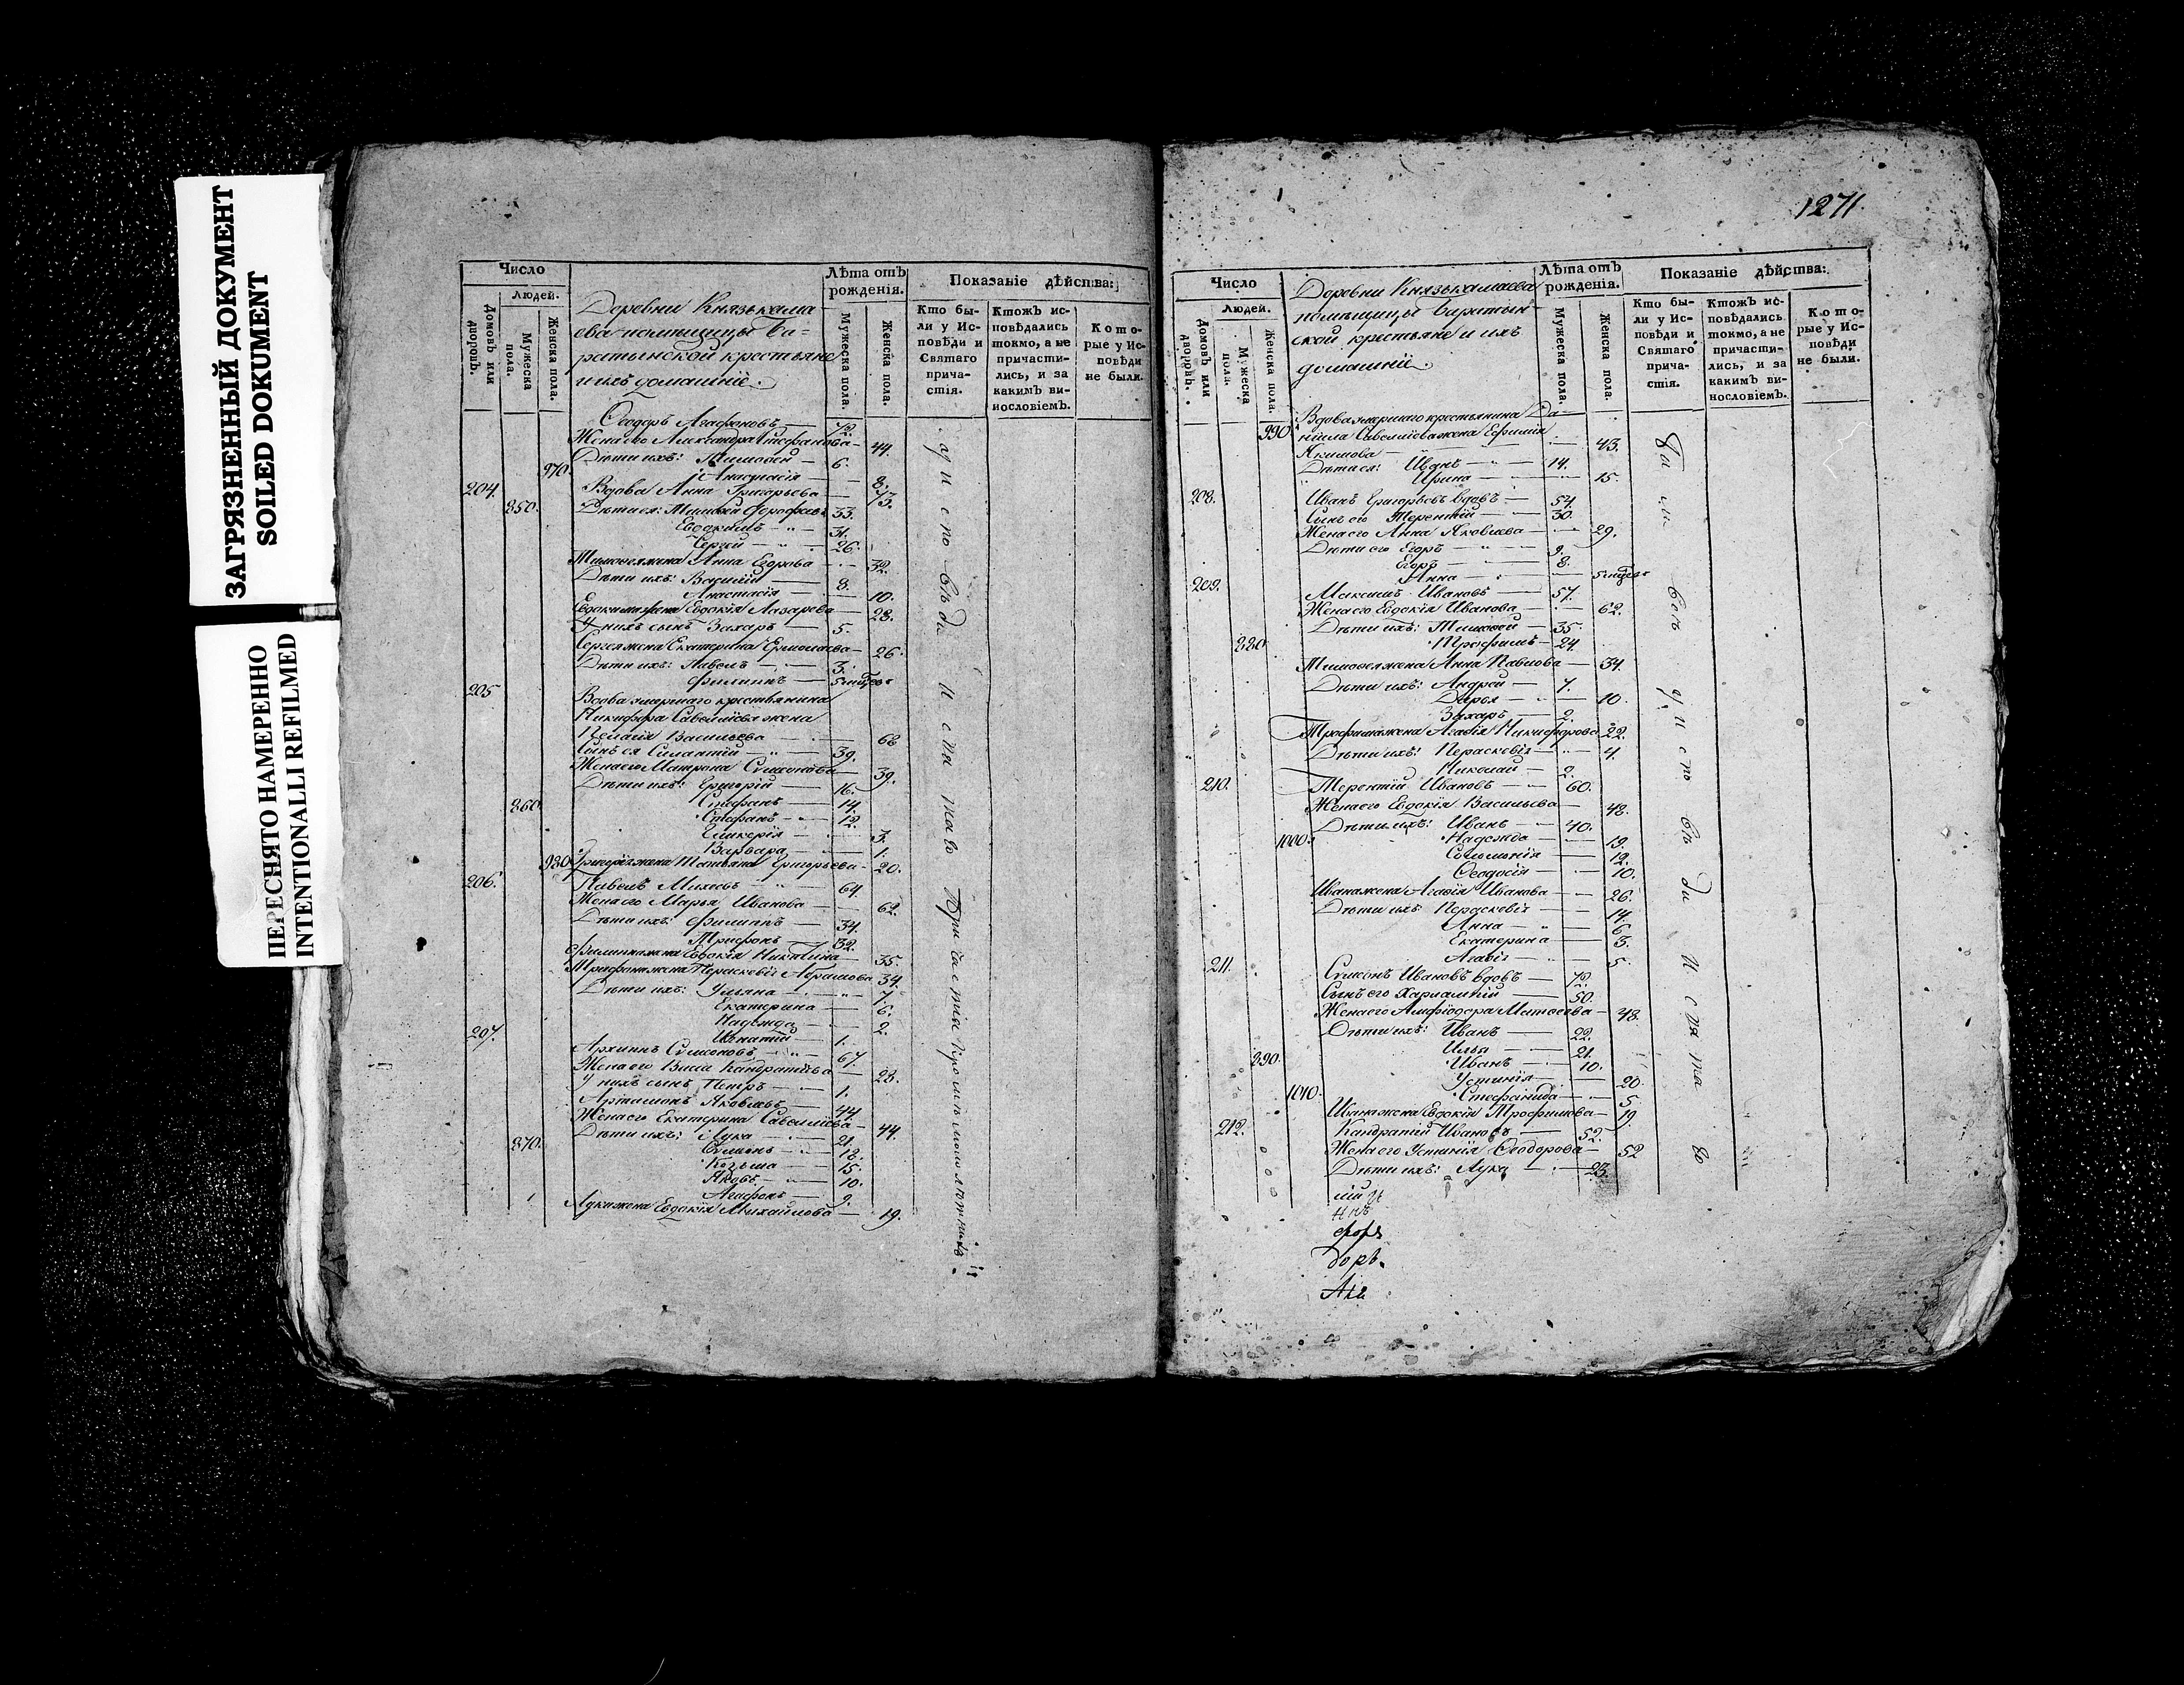 ЗАГРЯЗНЕННЫЙ ДОКУМЕНТ
SOILED DOCUMENT
ПЕРЕСНЯТО НАМЕРЕННО
INTENTIONALLI REFILMED
Число
Людей.
Домовъ или дворовъ.
Мужеска пола.
Женска пола.
Деревни Князькама
ева помѣщицы Ба-
ратынской крестьяне
и ихъ домашніе.
Лѣта отъ рожденія.
Мужеска пола.
Женска пола.
Показаніе дѣйства:
Кто бы-
ли у Ис-
повѣди и
Святаго
прича-
стія.
Ктожъ ис-
повѣдались
токмо, а не
причасти-
лись, и за
какимъ ви-
нословіемъ.
Кото-
рые у Ис-
повѣди
не были.
Ѳеодоръ Агафоновъ 42.
Жена его Александра Стефанова 44.
Дѣти ихъ: Тимофей 6.
970. Анастасія 8.
204. Вдова Анна Григорьева 73.
850. Дѣти ея: Тимофей 33.
Евдокимъ 31.
Сергей 26.
Тимофея жена Анна Егорова 32.
Дѣти ихъ: Василій 8.
Анастасія 10.
Евдокима жена Евдокія Лазарева 28.
У нихъ сынъ Захаръ 5.
Сергея жена Екатерина Ермолаева 26.
Дѣти ихъ: Павелъ 3.
Филиппъ
205. Вдова умершаго крестьянина
Никифора Савельева жена
Пелагія Васильева 66
Сынъ ея Силантій 39.
Жена его Матрона Симонова 39.
Дѣти ихъ: Григорій 16.
860. Стефанъ 14.
Стефанъ 12.
Гликерія 3.
Варвара 1.
980. Григорія жена Татьяна Григорьева 20.
206. Павелъ Михеевъ 64.
Жена его Марья Иванова 62.
Дѣти ихъ: Филиппъ 34.
Трифонъ 32.
Филиппа жена Евдокія Никитина 35.
Трифона жена Параскевія Абрамова 34.
Дѣти ихъ: Ульяна 7.
Екатерина 6.
Надежда 2.
Игнатій 1.
207. Архиппъ Симоновъ 67.
Жена его Васса Кандратьева 23.
У нихъ сынъ Петръ 1.
Артамонъ Яковлевъ 44
Жена его Екатерина Савельева 44.
Дѣти ихъ: Лука 21.
870. Симонъ 18.
Козьма 15.
Яковъ 10.
Агафонъ 9.
Луки жена Евдокія Михайлова 19.
у исповѣди и святаго причастія кромѣ малолѣтнихъ
1271
Число
Людей.
Домовъ или дворовъ.
Мужеска пола.
Женска пола.
Деревни Князькамаева
помѣщицы Баратын-
ской крестьяне и ихъ
домашніе.
Лѣта отъ рожденія.
Мужеска пола.
Женска пола.
Показаніе дѣйства:
Кто бы-
ли у Ис-
повѣди и
Святаго
прича-
стія.
Ктожъ ис-
повѣдались
токмо, а не
причасти-
лись, и за
какимъ ви-
нословіемъ.
Кото-
рые у Ис-
повѣди
не были.
Вдова умершаго крестьянина Да-
990. ніила Савельева жена Ефимія
Якимова 43.
Дѣти ея: Иванъ 14.
Ирина 15.
208. Иванъ Григорьевъ вдовъ 54.
Сынъ его Терентій 30.
Жена его Анна Яковлева 29.
Дѣти его Егоръ 9.
Егоръ 8.
Анна
209. Максимъ Ивановъ 57.
Жена его Евдокія Иванова 62.
Дѣти ихъ: Тимофей 35.
880. Трофимъ 24.
Тимофея жена Анна Павлова 34.
Дѣти ихъ: Андрей 7.
Дарья 10.
Захаръ 2.
Трофима жена Агафія Никифорова 22.
Дѣти ихъ: Параскевія 4.
Николай 2.
210. Терентій Ивановъ 60.
Жена его Евдокія Васильева 48.
Дѣти ихъ: Иванъ 40.
1000. Надежда 19.
Соломонія 12.
Ѳеодосія 10.
Ивана жена Агафія Иванова 26.
Дѣти ихъ Параскевія 14.
Анна 6.
Екатерина 3.
Агафія 5.
211. Симонъ Ивановъ вдовъ 72.
Сынъ его Харлампій 50.
Жена его Матвеева 48.
Дѣти ихъ: Иванъ 22.
Илья 21.
890. Иванъ 10.
Устинія 20.
1010. Стефанида 5.
Ивана жена Евдокія Трофимова 19.
212. Кандратій Ивановъ 52.
Жена его Устинія Ѳеодорова 52
Дѣти ихъ: Лука 23.
Были всѣ у исповѣди и святаго